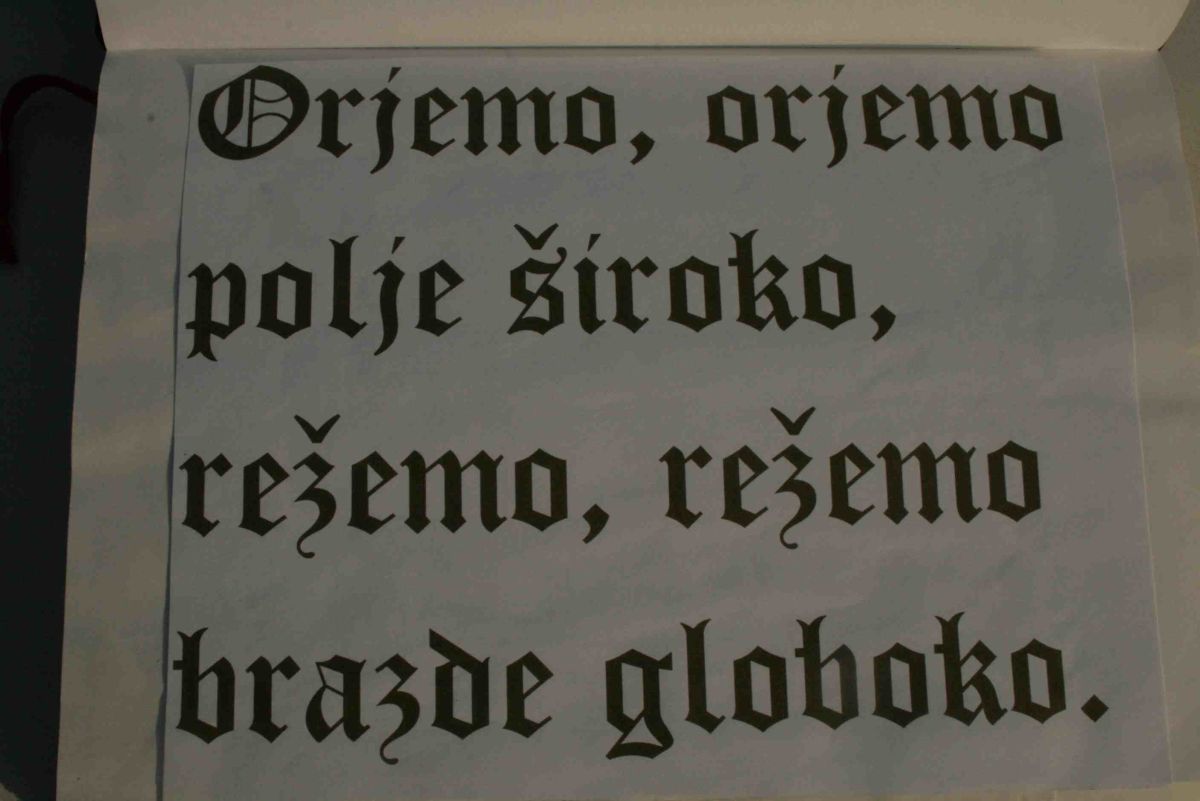 Orjemo, orjemo
polje široko,
režemo, režemo
brazde globoko.